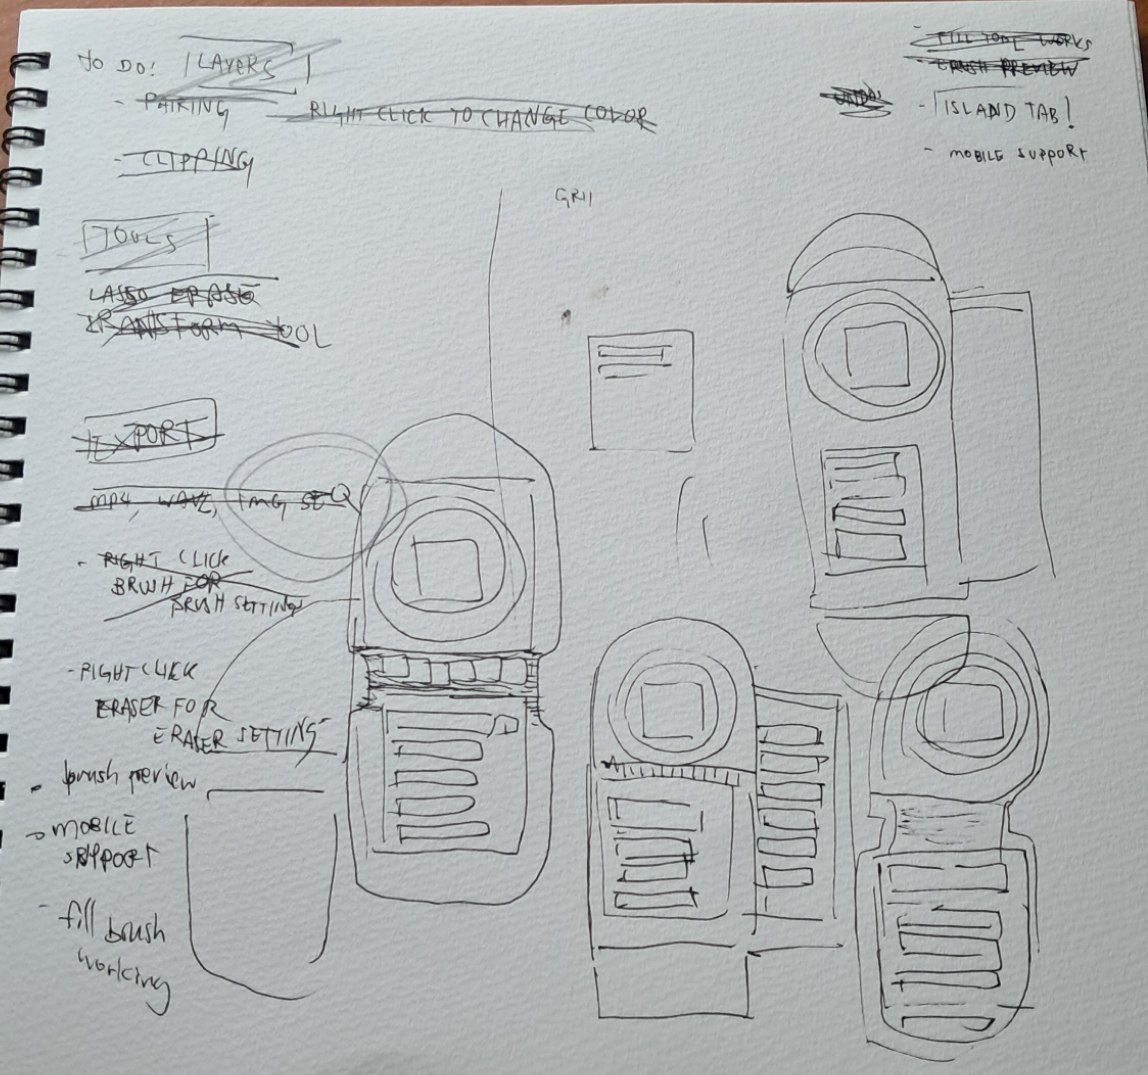 TO DO! LAYERS
- PAIRING
- RIGHT CLICK TO CHANGE COLOR
- CLIPPING
TOOLS
LASSO ERASE
TRANSFORM TOOL
EXPORT
MP4, WAVE, IMG SEQ
- RIGHT CLICK
BRUSH FOR
BRUSH SETTING
- RIGHT CLICK
ERASER FOR
ERASER SETTING
brush preview
MOBILE
SUPPORT
- fill brush
working
- FILL TOOL WORKS
- BRUSH PREVIEW
- ISLAND TAB!
- MOBILE SUPPORT